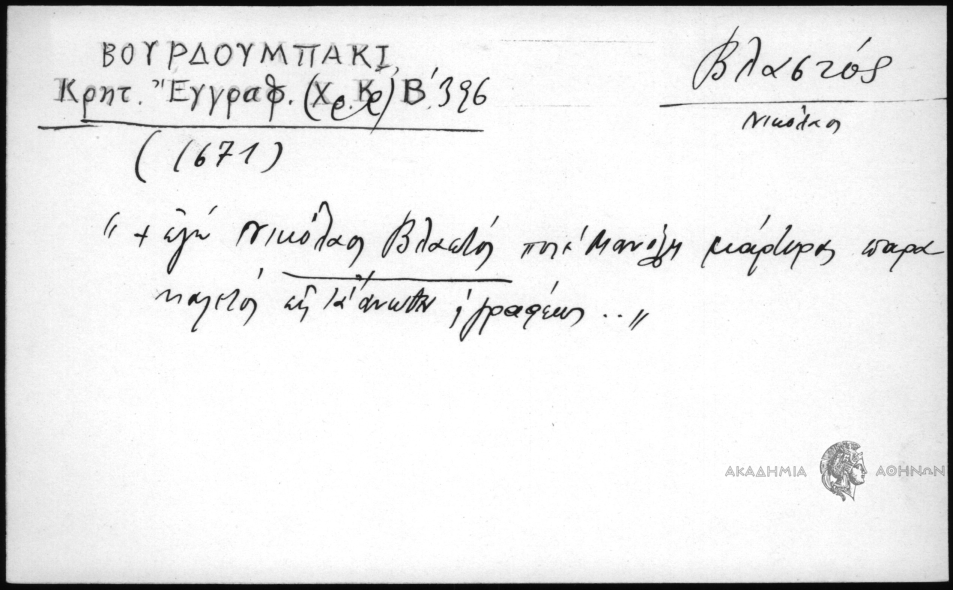 ΒΟΥΡΔΟΥΜΠΑΚΙ,
Κρητ. Ἔγγραφ. (Χρ. Κρ) Β΄. 396
(1671)
Βλαστός
Νικόλαος
" + ἐγώ Νικόλαος Βλαστός ποτέ Μανόλη μάρτυρας παρα
καλετός εἰς τά ἄνωθεν ἐγραφέως .. "
ΑΚΑΔΗΜΙΑ ΑΘΗΝΩΝ